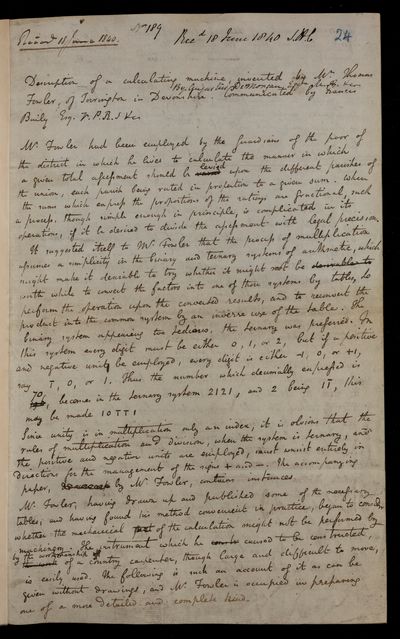 No 189
Read 11 June 1840.
Recd 18 June 1840 S.H.C
24
Description of a calculating machine, invented by Mr Thomas
Fowler, of Torrington in Devonshire. By Augustus De Morgan Esqr
Communicated by Francis
Baily Esq. V.P.R.S &c
Mr Fowler had been employed by the Guardians of the poor of
the district in which he lives to calculate the manner in which
a given total assessment should be levied upon the different parishes of
the union, each parish being rated in proportion to a given sum. When
the sums which express the proportions of the ratings are fractional, such
a process, though simple enough in principle, is complicated in its
operations, if it be desired to divide the assessment with legal precision.
It suggested itself to Mr Fowler that the process of multiplication
assumes a simplicity in the binary and ternary systems of arithmetic, which
might make it desirable to try whether it might not be
worth while to convert the factors into one of those systems by tables, to
perform the operation upon the converted results, and to reconvert the
product into the common system by an inverse use of the tables. The
binary system appearing too tedious, the ternary was preferred. In
this system every digit must be either 0, 1, or 2, but if a positive
and negative unity be employed, every digit is either -1, 0, or +1,
say T, 0, or 1. Thus the number which decimally expressed is
70, becomes in the ternary system 2121, and 2 being 1T, this
may be made 10TT1
Since unity is in multiplication only an index, it is obvious that the
rules of multiplication and division, when the system is ternary, and
the positive and negative units are employed, must consist entirely in
directions for the management of the signs + and −. The accompanying
paper, by Mr Fowler, contains instances.
Mr Fowler, having drawn up and published some of the necessary
tables, and having found his method convenient in practice, began to consider
whether the mechanical part of the calculation might not be performed by
machinery. The instrument which he caused to be constructed,
by the workmanship of a country carpenter, though large and difficult to move,
is easily used. The following is such an account of it as can be
given without drawings, and Mr Fowler is occupied in preparing
one of a more detailed and complete kind.